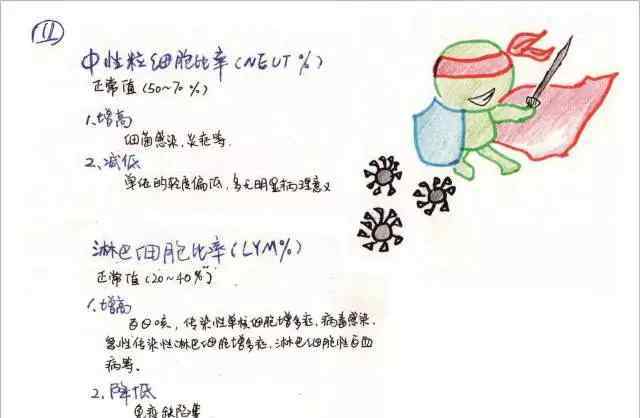 11
中性粒细胞比率(NEUT%)
正常值(50~70%)
1.增高
细菌感染,炎症等.
2、减低
单纯的轻度偏低,多无明显病理意义
淋巴细胞比率(LYM%)
正常值(20~40%)
1.增高
百日咳,传染性单核细胞增多症,病毒感染.
急性传染性淋巴细胞增多症,淋巴细胞性白血
病等.
2.降低
免疫缺陷